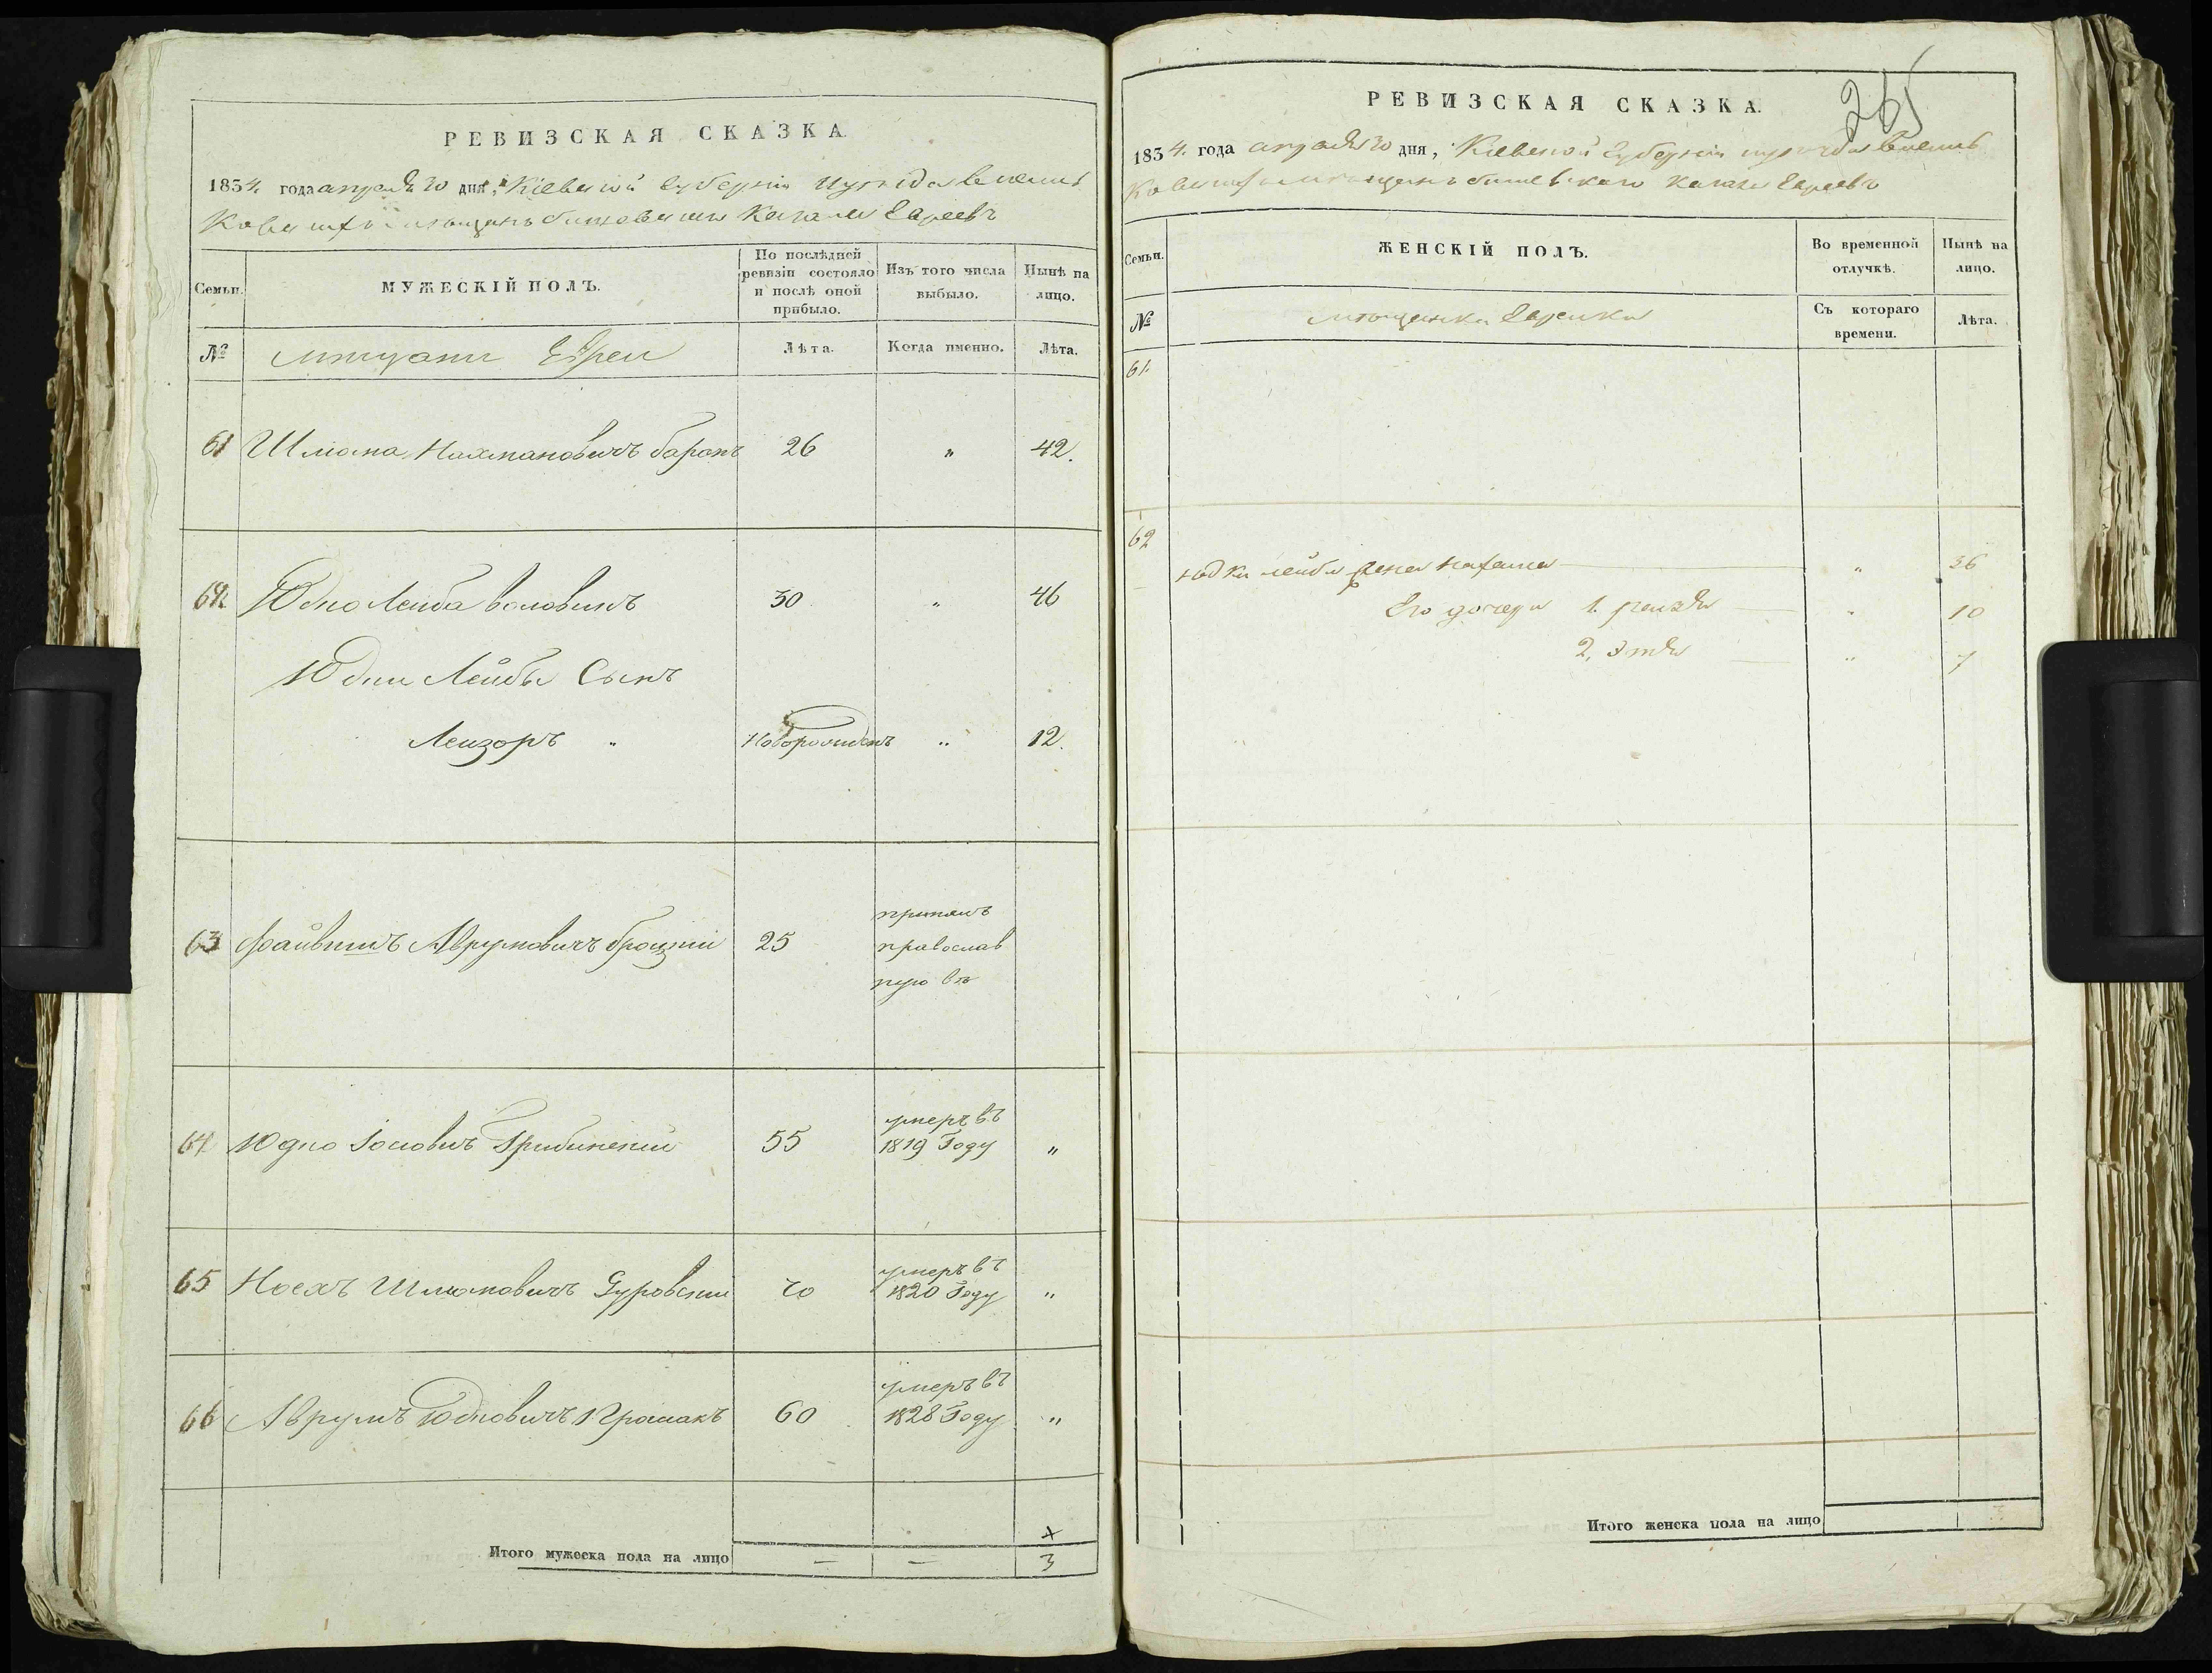 РЕВИЗСКАЯ СКАЗКА.
1834. года апреля 20 дня, Кіевской губерніи
мещанъ Кагала Евреевъ
Семьи.
МУЖЕСКІЙ ПОЛЪ.
По послѣдней ревизіи состояло и послѣ оной прибыло.
Изъ того числа выбыло.
Нынѣ на лицо.
№
мещани Евреи
Лѣта.
Когда именно.
Лѣта.
61 Шлиома Нахмановичъ баронъ 26 " 42.
62. Юдко Лейба воловикъ 30 " 46
Юдки Лейбы Сынъ
Лейзоръ " Новорожденъ " 12.
63 Файвишъ Аврумовичъ броцкии 25
принялъ
православ
ную вѣ
64 Юдко Іосиовичъ Грибинскии 55 умеръ въ
1819 Году "
65 Носхъ Шлиомовичъ Гуровскии 70 умеръ въ
1820 Году "
66 Аврумъ Юдковичъ 60 умеръ въ
1828 Году "
Итого мужеска пола на лицо — — 3
265
РЕВИЗСКАЯ СКАЗКА.
1834. года апреля 20 дня, Кіевской губерніи
мещанъ Кагала Евреевъ
Семьи.
ЖЕНСКІЙ ПОЛЪ.
Во временной отлучкѣ.
Нынѣ на лицо.
№
мещанки Еврейки
Съ котораго времени.
Лѣта.
61.
62
Юдки лейбы жена " 36
Его дочери 1. рейзя " 10
2, Этя " 7
Итого женска пола на лицо